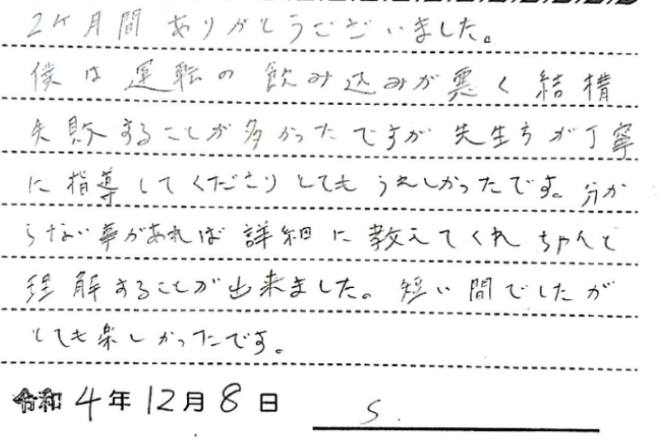 2ヶ月間ありがとうございました。
僕は運転の飲み込みが悪く結構
失敗することが多かったですが先生ちが丁寧
に指導してくださりとてもうれしかったです。分か
らない事があれば詳細に教えてくれちゃんと
理解することが出来ました。短い間でしたが
とても楽しかったです。
令和4年12月8日 S.